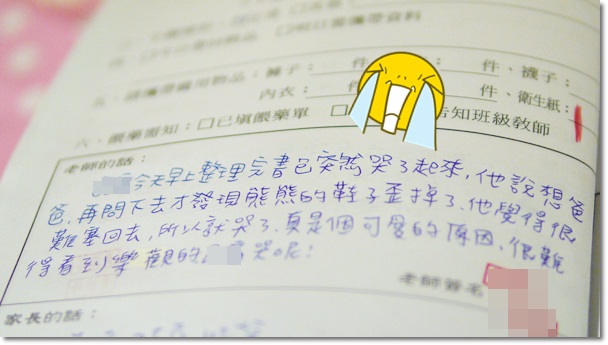 五、請攜帶備用物品：褲子：　　件、　　件、襪子：
內衣：　　件、　　件、衛生紙：
六、餵藥需知：□已填餵藥單　□　告知班級教師
老師的話：
今天早上整理完書包突然哭了起來，他說想爸
爸，再問下去才發現熊熊的鞋子歪掉了，他覺得很
難塞回去，所以就哭了，真是個可愛的原因，很難
得看到樂觀的　　哭呢！
老師簽名
家長的話：